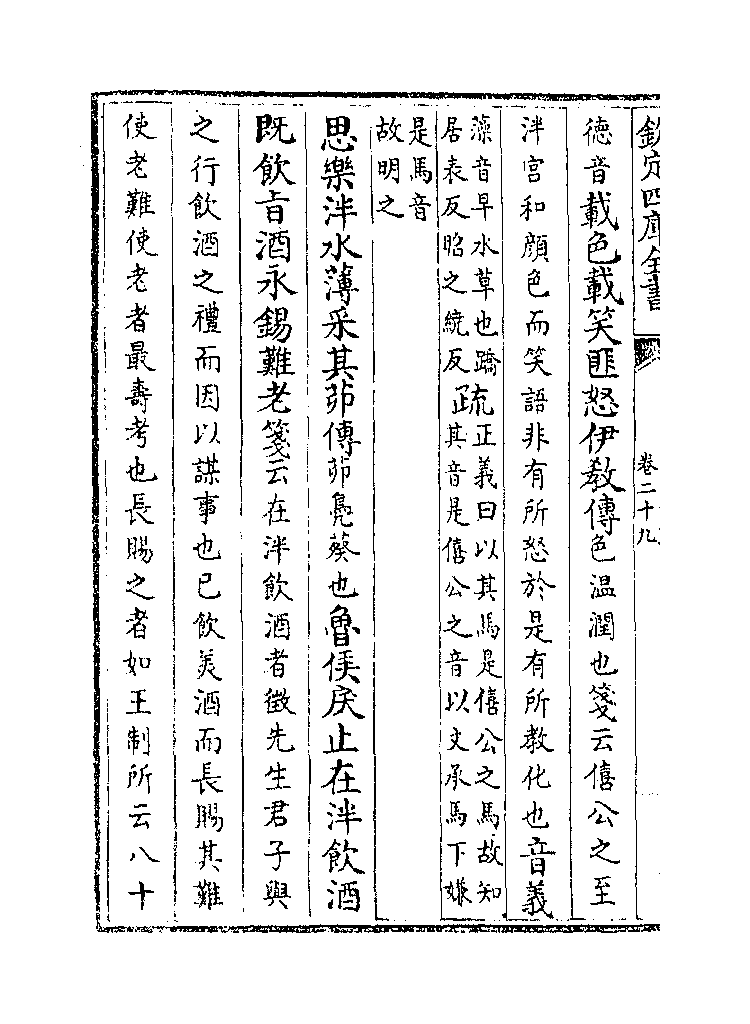 欽定四庫全書
卷二十九
德音載色載笑匪怒伊教傳色温潤也箋云僖公之至
泮宫和顔色而笑語非有所怒於是有所教化也音義
藻音早水草也蹻
居表反昭之繞反
疏
正義曰以其馬是僖公之馬故知
其音是僖公之音以文承馬下嫌
是馬音
故明之
思樂泮水薄采其茆傳茆鳧葵也魯侯戾止在泮飲酒
既飲旨酒永錫難老箋云在泮飲酒者徵先生君子與
之行飲酒之禮而因以謀事也已飲美酒而長賜其難
使老難使老者最壽考也長賜之者如王制所云八十